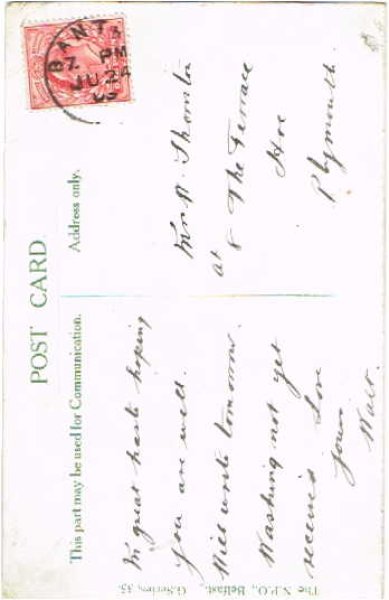 POST CARD
This part may be used for Communication.
Address only.
In great haste hoping
you are well.
Will write tomorrow.
Washing not yet
received Love
from
Walt.
Mrs W. Thornton
at
8 The Terrace
Hoe
Plymouth.
BANT
7. PM
JU 24
The N.P.O., Belfast. G. Series, 35.